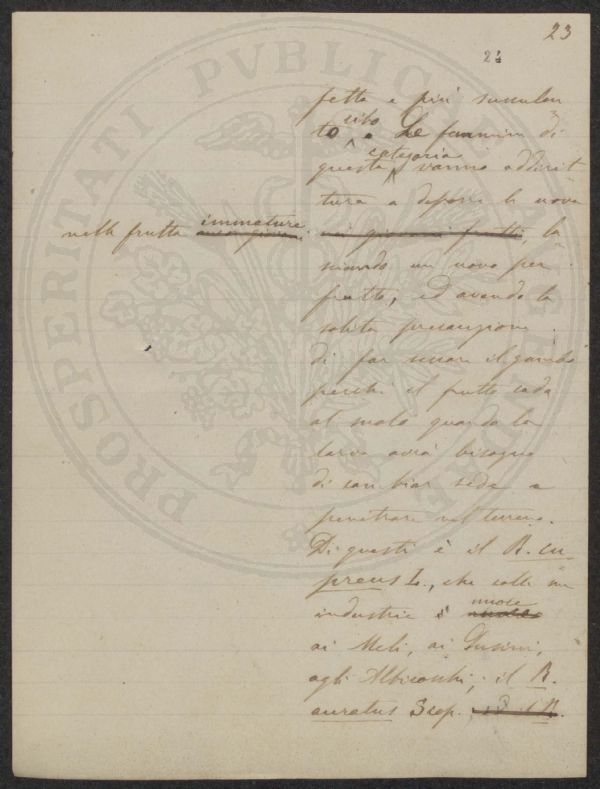 23
24
fetta e più succulen
to cibo. Le femmine di
questa categoria vanno addirit
tura a deporre le uova
nelle frutta immature nei giovani frutti, la
sciando un uovo per
frutto, ed avendo la
solita precauzione
di far seccare il gambo
perchè il frutto cada
al suolo quando la
larva avrà bisogno
di cambiar sede e
penetrare nel terreno.
Di questi è il R. cu
preus L., che colle sue
industrie è nuoce
ai Meli, ai Susini,
agli Albicocchi; il R.
auratus Scop., ed il R.
PROSPERITATI PVBLICAE AVGENDAE